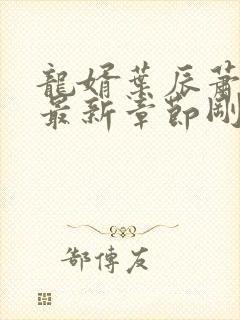 龍婿葉辰蕭
最新章節剛
郜傅友